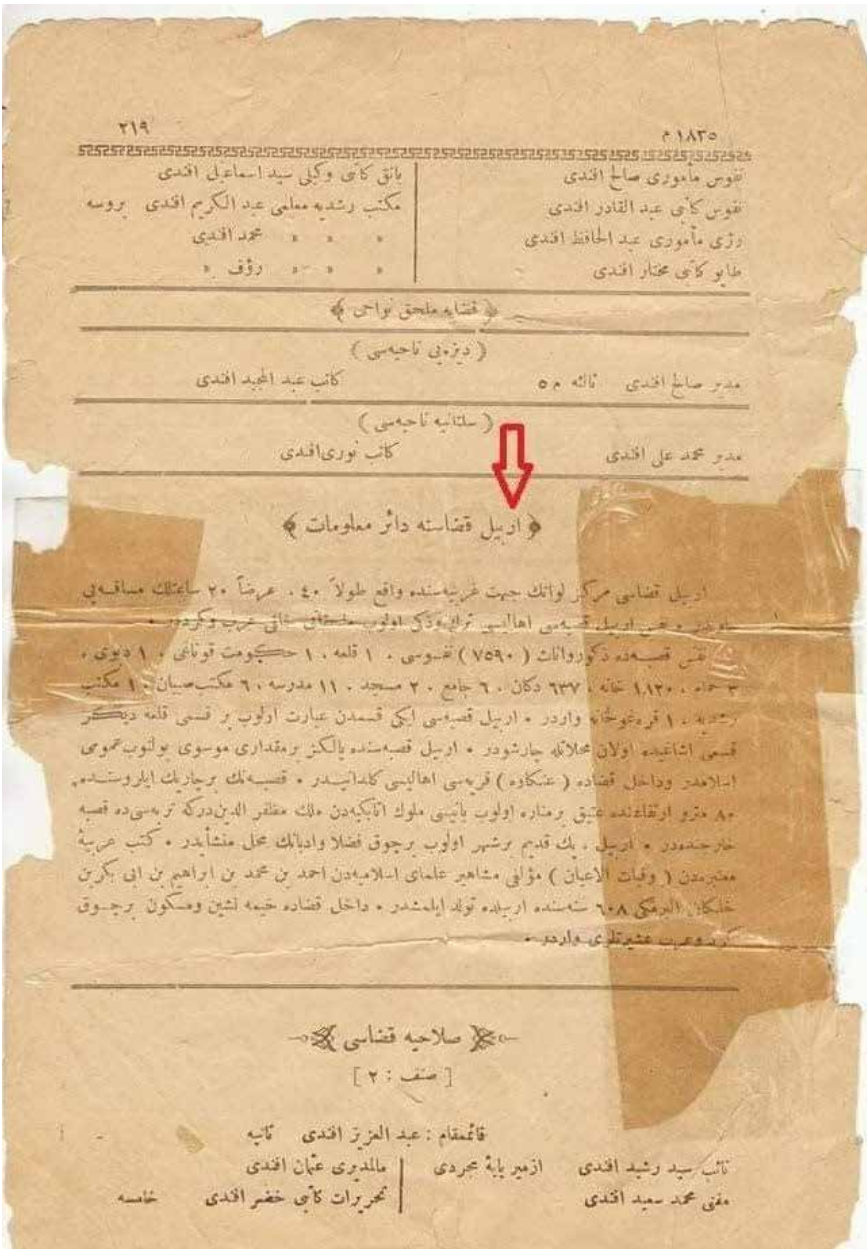 ٢١٩
١٨٣٥ م
نفوس مأموری صالح افندی
نفوس كاتبی عبد القادر افندی
رژی مأموری عبد الحافظ افندی
طاپو كاتبی مختار افندی
بانق كاتبی وكیلی سید اسماعیل افندی
مكتب رشدیه معلمی عبد الكریم افندی بروسه
« « « محمد افندی
« « « رؤف «
﴿ قضایه ملحق نواحی ﴾
( دیزه‌یی ناحیه‌سی )
مدیر صالح افندی ثالثه م ٥ كاتب عبد المجید افندی
( سلتانیه ناحیه‌سی )
مدیر محمد علی افندی كاتب نوری افندی
﴿ اربیل قضاسنه دائر معلومات ﴾
اربیل قضاسی مركز لوانك جهت غربیه‌سنده واقع طولاً ٤٠ ، عرضاً ٢٠ ساعتلك مسافه‌یی
اربیل قصبه‌سی اهالیسی اولوب عرب وكرددر •
نفس قصبه‌ده ذكور واناث ( ٧٥٩٠ ) نفوسی ، ١ قلعه ، ١ حكومت قوناغی ، ١ دپوی ،
٣ حمام ، ١٨٢٠ خانه ، ٦٣٧ دكان ، ٦ جامع ، ٢ مسجد ، ١١ مدرسه ، ٦ مكتب صبیان ، ١ مكتب
رشدیه ، ١ قره‌غولخانه واردر • اربیل قصبه‌سی ایكی قسمدن عبارت اولوب بر قسمی قلعه دیكر
قسمی اشاغیده اولان محلاتله چارشودر • اربیل قصبه‌سنده یالكز بر مقداری موسوی بولنوب عمومی
اسلامدر وداخل قضاده ( عنكاوه ) قریه‌سی اهالیسی كلدانیدر • قصبه‌نك بر چاریك ایلروسنده
٨٠ مترو ارتفاعنده عتیق بر مناره اولوب بانیسی ملوك اتابكیه‌دن ملك مظفر الدین‌دركه تربه‌سی‌ده قصبه
خارجنده‌در • اربیل ، پك قدیم بر شهر اولوب بر چوق فضلا وادبانك محل منشأیدر • كتب عربیهٔ
معتبره‌دن ( وفیات الاعیان ) مؤلفی مشاهیر علمای اسلامیه‌دن احمد بن محمد بن ابراهیم بن ابی بكر بن
خلكان البرمكی ٦٠٨ سنه‌سنده اربیلده تولد ایلمشدر • داخل قضاده خیمه نشین ومسكون بر چوق
كرد وعرب عشیرتلری واردر •
صلاحیه قضاسی
[ صنف : ٢ ]
قائممقام : عبد العزیز افندی ثانیه
نائب سید رشید افندی ازمیر پایهٔ مجردی
مفتی محمد سعید افندی
مالمدیری عثمان افندی
تحریرات كاتبی خضر افندی خامسه